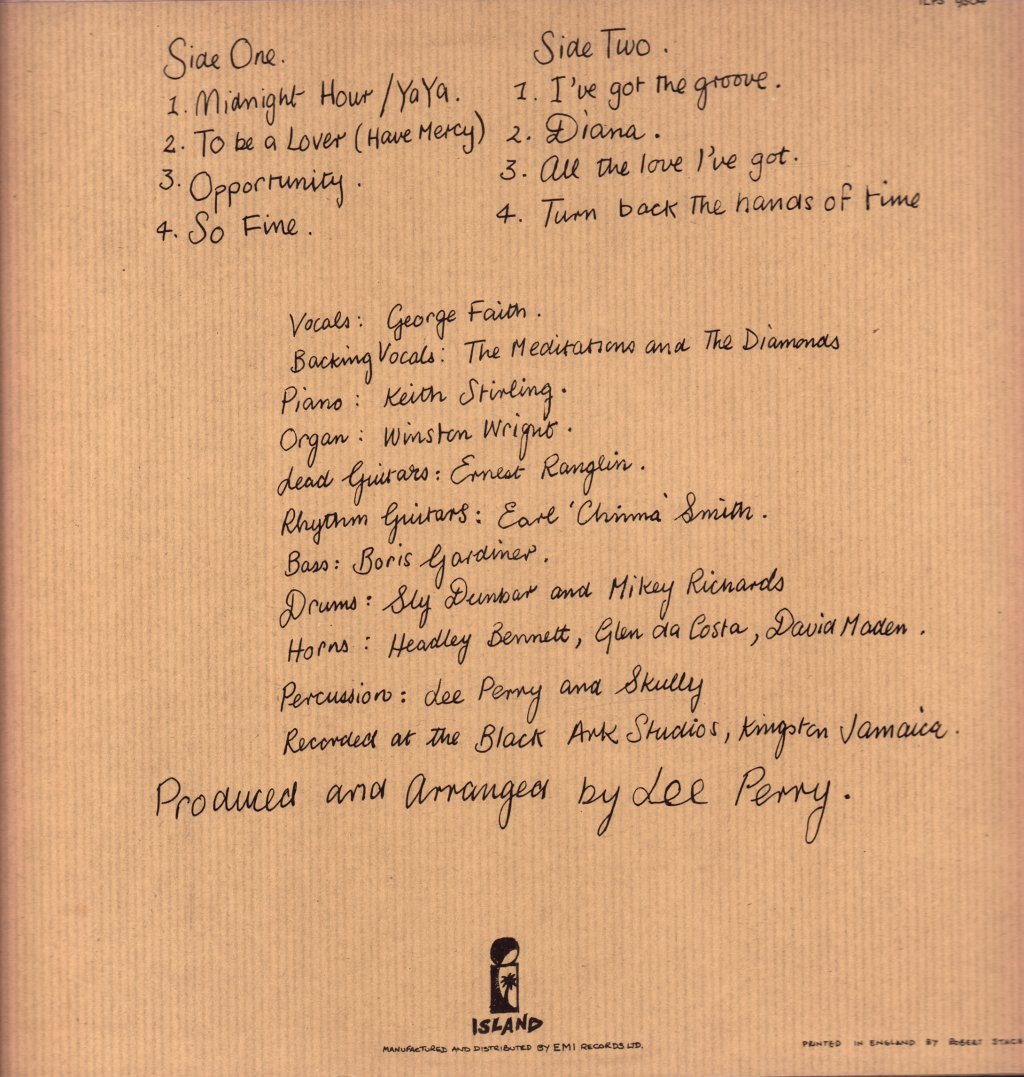 ILPS 9504
Side One.
1. Midnight Hour / YaYa.
2. To be a Lover (Have Mercy)
3. Opportunity.
4. So Fine.
Side Two.
1. I've got the groove.
2. Diana.
3. All the love I've got.
4. Turn back the hands of time
Vocals: George Faith.
Backing Vocals: The Meditations and The Diamonds
Piano: Keith Stirling.
Organ: Winston Wright.
Lead Guitars: Ernest Ranglin.
Rhythm Guitars: Earl 'Chinna' Smith.
Bass: Boris Gardiner.
Drums: Sly Dunbar and Mikey Richards
Horns: Headley Bennett, Glen da Costa, David Maden.
Percussion: Lee Perry and Skully
Recorded at the Black Ark Studios, Kingston Jamaica.
Produced and Arranged by Lee Perry.
ISLAND
MANUFACTURED AND DISTRIBUTED BY EMI RECORDS LTD.
PRINTED IN ENGLAND BY ROBERT STACE